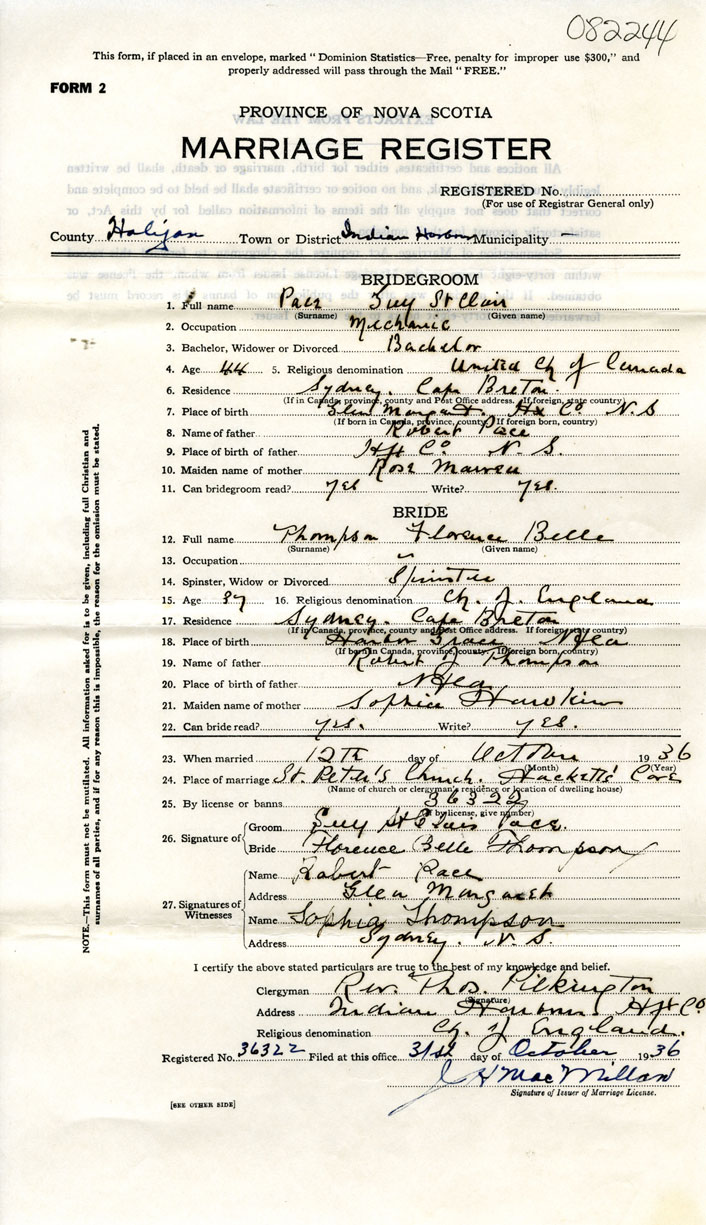 082244
This form, if placed in an envelope, marked "Dominion Statistics—Free, penalty for improper use $300," and
properly addressed will pass through the Mail "FREE."
FORM 2
PROVINCE OF NOVA SCOTIA
MARRIAGE REGISTER
REGISTERED No.
(For use of Registrar General only)
County Halifax Town or District Indian Harbour Municipality —
BRIDEGROOM
1. Full name Pace Guy St Clair
(Surname) (Given name)
2. Occupation Mechanic
3. Bachelor, Widower or Divorced Bachelor
4. Age 44 5. Religious denomination United Ch of Canada
6. Residence Sydney. Cape Breton.
(If in Canada, province, county and Post Office address. If foreign, state country)
7. Place of birth Glen Margaret. Hx Co N.S
(If born in Canada, province, county. If foreign born, country)
8. Name of father Robert Pace
9. Place of birth of father Hfx Co. N. S.
10. Maiden name of mother Rose
11. Can bridegroom read? Yes Write? Yes.
BRIDE
12. Full name Thompson Florence Belle
(Surname) (Given name)
13. Occupation
14. Spinster, Widow or Divorced Spinster
15. Age 37 16. Religious denomination Ch. of England
17. Residence Sydney. Cape Breton
(If in Canada, province, county and Post Office address. If foreign state country)
18. Place of birth Harbor Grace Nfld
(If born in Canada, province, county. If foreign born, country)
19. Name of father Robert J Thompson
20. Place of birth of father Nfld
21. Maiden name of mother Sophia Hawkins
22. Can bride read? Yes. Write? Yes.
23. When married 12th day of October 1936
(Month) (Year)
24. Place of marriage St. Peter's Church. Hacketts Cove
(Name of church or clergyman's residence or location of dwelling house)
25. By license or banns 36322
(If by license, give number)
26. Signature of
Groom Guy St Clair Pace.
Bride Florence Belle Thompson
27. Signatures of Witnesses
Name Robert Pace
Address Glen Margaret
Name Sophia Thompson
Address Sydney. N. S.
I certify the above stated particulars are true to the best of my knowledge and belief.
Clergyman Rev. Thos. Pilkington
(Signature)
Address Indian Harbour Hfx Co.
Religious denomination Ch. of England.
Registered No. 36322 Filed at this office 31st day of October 1936
J H MacMillan
Signature of Issuer of Marriage License.
[SEE OTHER SIDE]
NOTE.—This form must not be mutilated. All information asked for is to be given, including full Christian and
surnames of all parties, and if for any reason this is impossible, the reason for the omission must be stated.